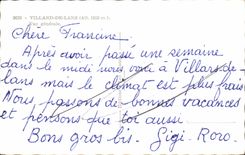 VILLARD-DE-LANS
Vue générale
Chère Francine.
Après avoir passé une semaine
dans le midi nous voilà à Villars de
lans mais le climat est plus frais
Nous passons de bonnes vacances
et pensons que toi aussi.
Bons gros bis. Gigi - Roro.